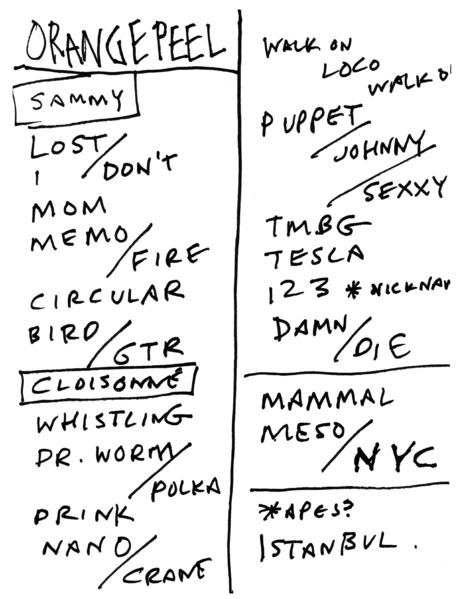 ORANGE PEEL
SAMMY
LOST/
I DON'T
MOM
MEMO/
FIRE
CIRCULAR
BIRD/
GTR
CLOISONNÉ
WHISTLING
DR. WORM/
POLKA
DRINK
NANO/
CRANE
WALK ON
LOCO
WALK O
PUPPET/
JOHNNY/
SEXXY
TMBG
TESLA
123 *NICKNA
DAMN/
DIE
MAMMAL
MESO/
NYC
*APES?
ISTANBUL.